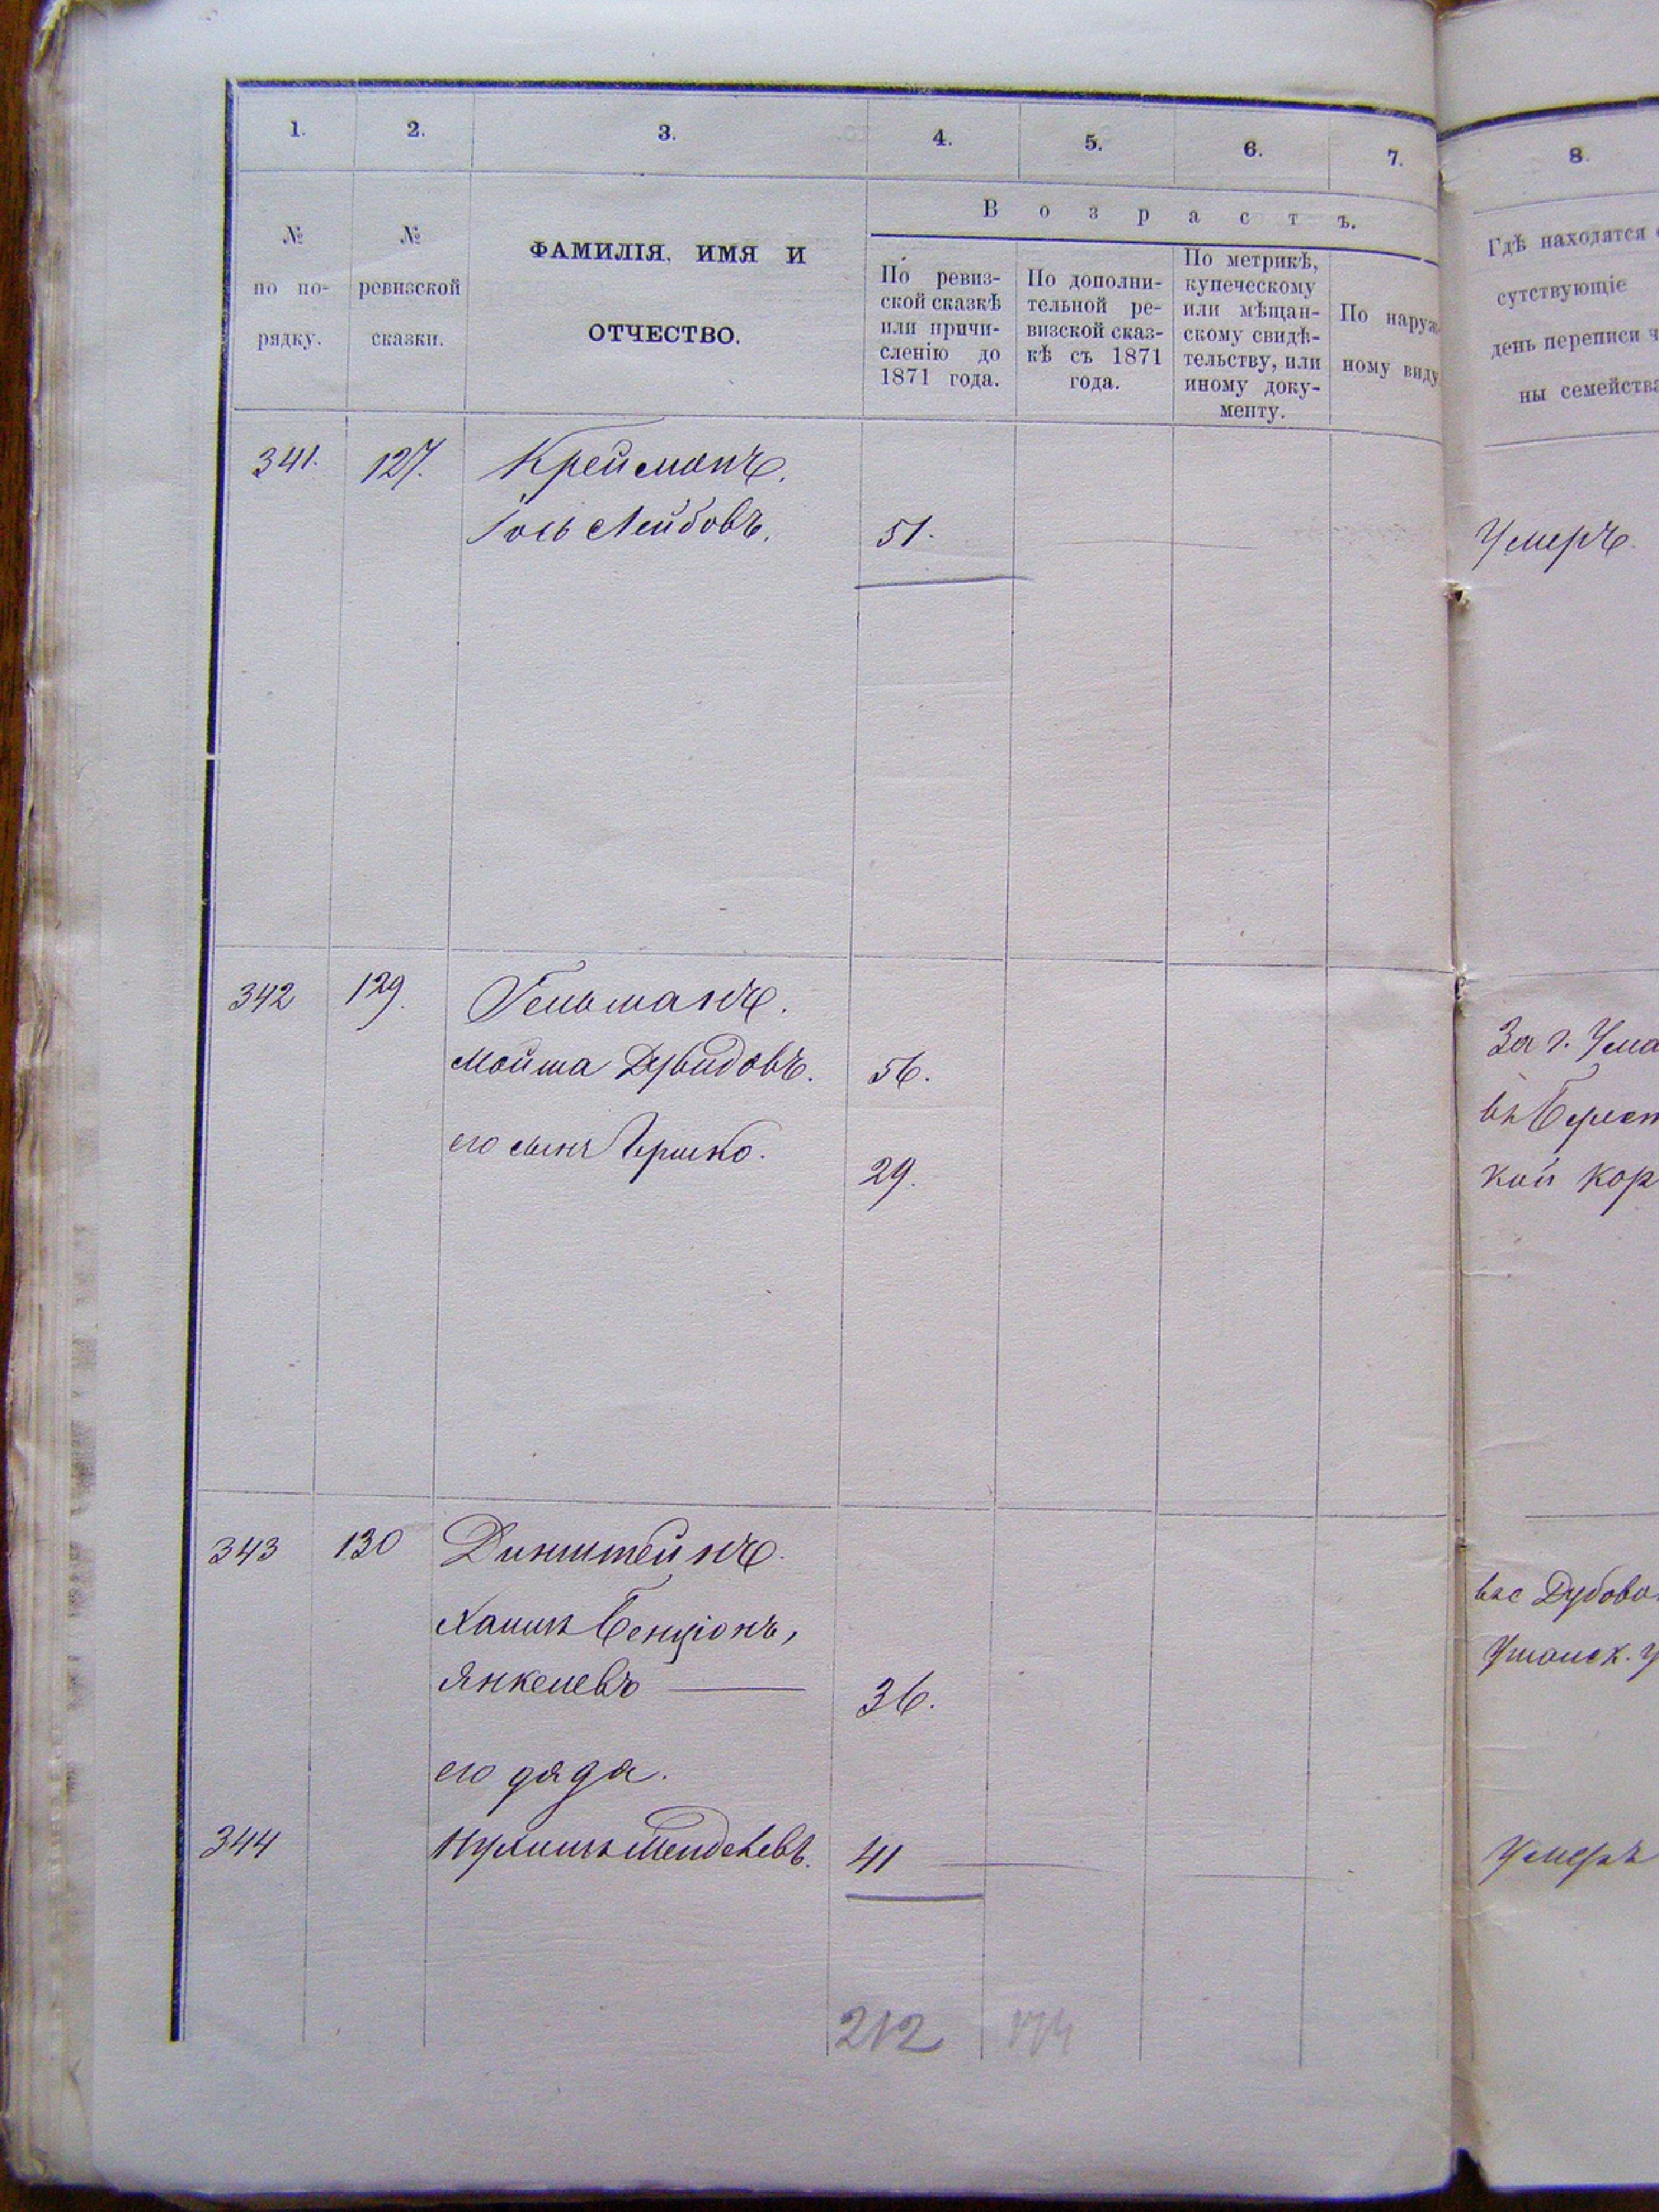 1. 2. 3. 4. 5. 6. 7. 8.
№ по по- рядку.
№ ревизской сказки.
ФАМИЛІЯ, ИМЯ И
ОТЧЕСТВО.
Возрастъ.
По ревиз-
ской сказкѣ
или причи-
сленію до
1871 года.
По дополни-
тельной ре-
визской сказ-
кѣ съ 1871
года.
По метрикѣ,
купеческому
или мѣщан-
скому свидѣ-
тельству, или
иному доку-
менту.
По наруж-
ному виду
Гдѣ находятся
сутствующіе
день переписи ч
ны семейства
341. 127. Крейманъ.
Іось Лейбовъ. 51. Умеръ.
342 129. Гельманъ.
Мойша Дувидовъ. 56.
его сынъ Гершко. 29.
За г. Ума
въ Берест
кой кор
343 130 Динштейнъ.
Хаимъ Бенціонъ,
Янкелевъ 36.
вас Дубово
Уманск. у
его дядя.
344 Нухимъ Менделевъ. 41 Умеръ
212